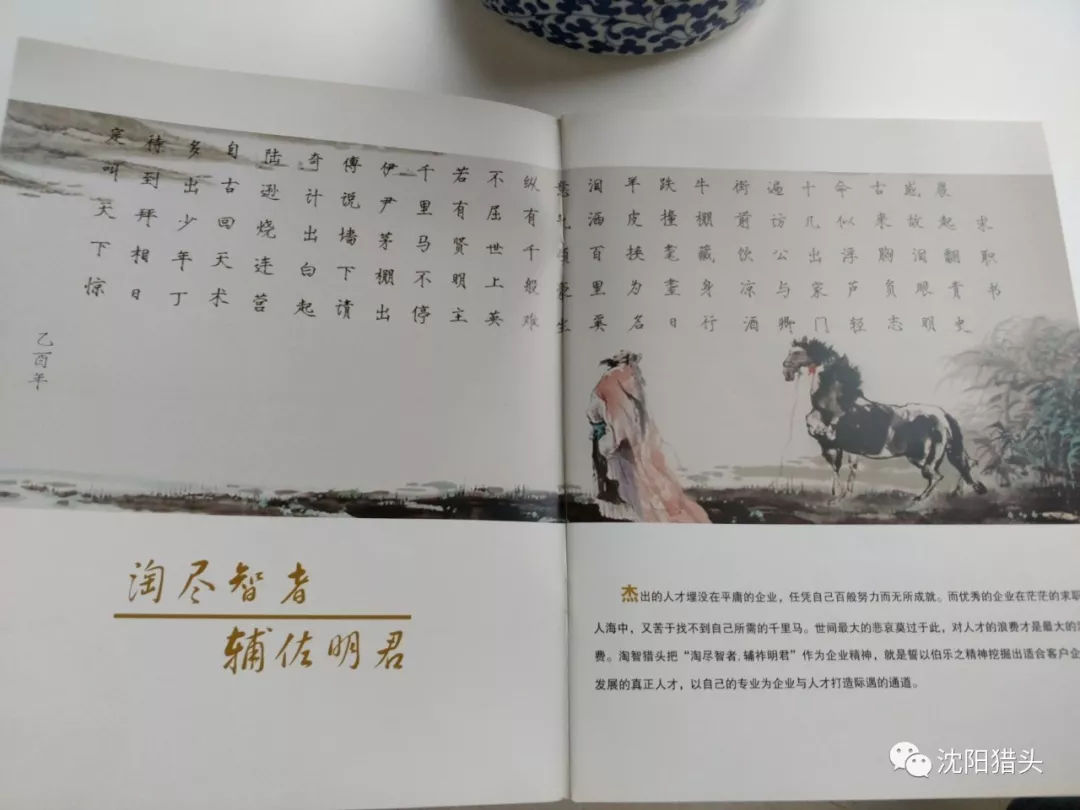 求职书
晨起翻青史
感故泪眼明
古来胸负志
命似浮芦轻
十几出家门
遍访公与卿
街前饮凉酒
牛棚藏身行
跌撞耄耋日
羊皮换为名
泪洒百里奚
纵有千般难
不屈世上英
若有贤明主
千里马不停
伊尹茅棚出
傅说墙下请
奇计出白起
陆逊烧连营
自古回天术
多出少年丁
待到拜相日
定叫天下惊
乙酉年
淘尽智者
辅佐明君
杰出的人才埋没在平庸的企业，任凭自己百般努力而无所成就。而优秀的企业在茫茫的求职
人海中，又苦于找不到自己所需的千里马。世间最大的悲哀莫过于此，对人才的浪费才是最大的
费。淘智猎头把“淘尽智者,辅祚明君”作为企业精神，就是誓以伯乐之精神挖掘出适合客户企
发展的真正人才，以自己的专业为企业与人才打造际遇的通道。
沈阳猎头